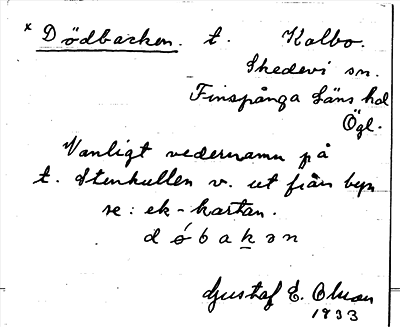 x Dödbacken. t. Kalbo.
Skedevi sn.
Finspånga läns hd
Ögl.
Vanligt vedernamn på
t. Stenkullen v. ut från byn
se: ek-kartan.
dóbakən
Gustaf E. Olsson
1933